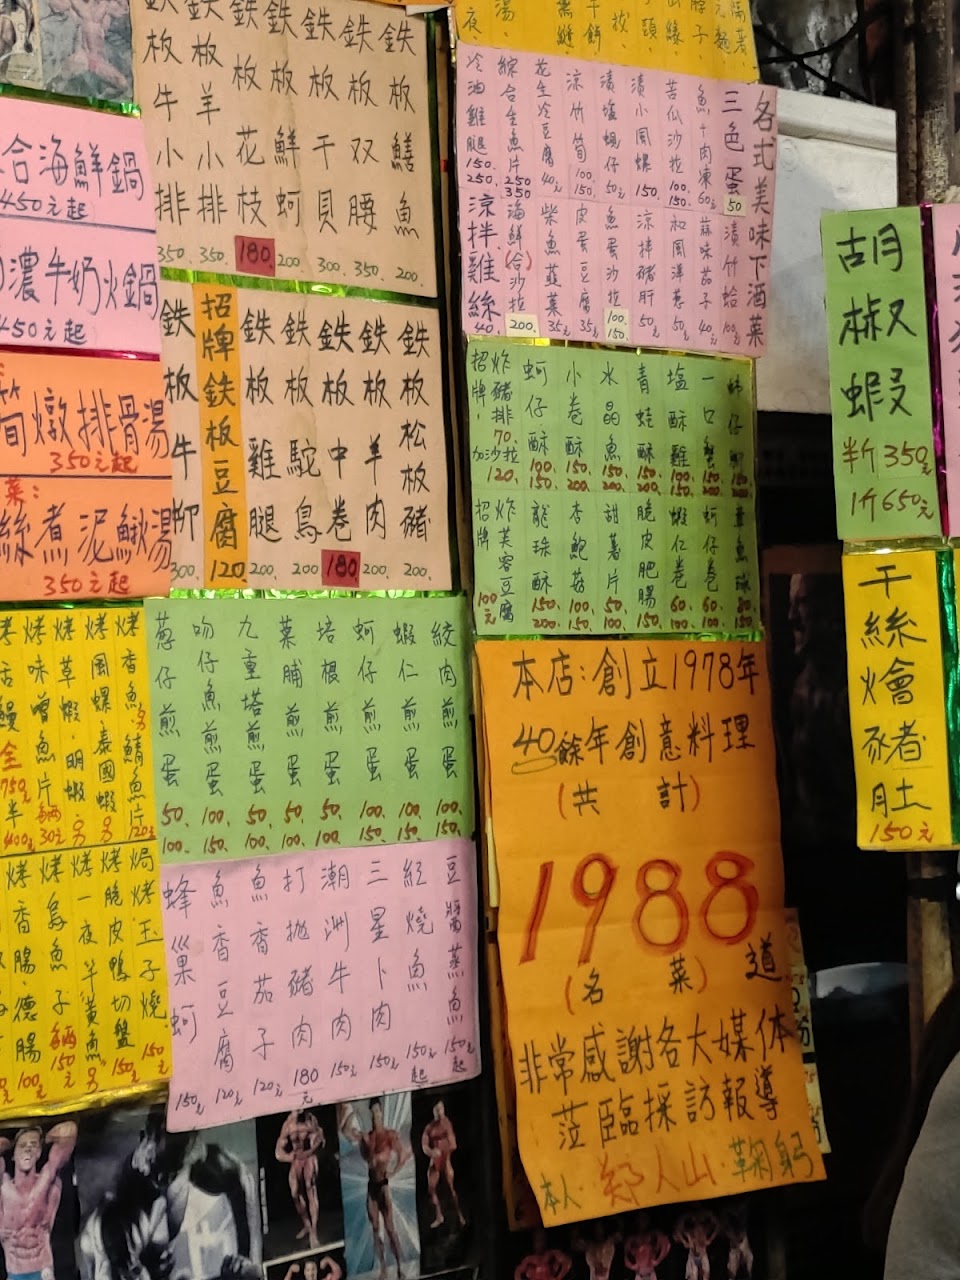 鉄板牛小排 350.
鉄板羊小排 350.
鉄板花枝 180
鉄板鮮蚵 200
鉄板干貝 300.
鉄板双腰 350.
鉄板鱔魚 200.
鉄板牛柳 300.
招牌鉄板豆腐 120.
鉄板雞腿 200.
鉄板駝鳥 200.
鉄板中卷 180
鉄板羊肉 200.
鉄板松板豬 200.
合海鮮鍋
450元起
濃牛奶火鍋
450元起
筍燉排骨湯
350元起
菜:
絲煮泥鰍湯
350元起
葱仔煎蛋 50. 100.
吻仔魚煎蛋 100. 100.
九重塔煎蛋 50. 100.
菜脯煎蛋 50. 100.
培根煎蛋 50. 100.
蚵仔煎蛋 100. 150.
蝦仁煎蛋 100. 150.
絞肉煎蛋 100. 150.
蜂巢蚵 150元
魚香豆腐 120元
魚香茄子 120元
打拋豬肉 180元
潮洲牛肉 150元
三星卜肉 150元
紅燒魚 150元起
豆醬蒸魚 150元起
烤味噌魚片 30元
烤草蝦.明蝦
烤風螺泰國蝦
烤香魚.鯖魚片 120元
烤香腸.德腸 100元
烤烏魚子 150元
烤一夜干黃魚
烤脆皮鴨切盤 150元
焗烤玉子燒 150元
各式美味下酒菜
三色蛋 50
魚卡肉凍 60元
苦瓜沙拉 100. 150.
漬小風螺 150.
漬塩蜆仔 50元
涼竹筍 100. 150.
花生冷豆腐 40元
綜合生魚片 250 350
冷油雞腿 150. 250.
漬竹蛤 100元
蒜味茄子 40元
和風薄卷 50元
涼拌豬肝 50元
魚蛋沙拉 100. 150.
皮蛋豆腐 35元
柴魚韮菜 35元
海鮮(合)沙拉 200.
涼拌雞絲 40.
招牌.炸豬排 70. 加沙拉 120.
蚵仔酥 100. 150.
小卷酥 150. 200.
水晶魚 150. 200.
青蛙酥 150. 200.
塩酥雞 100. 150.
一口蟹 150. 200.
招牌 炸芙蓉豆腐 100元
龍珠酥 150. 200.
杏鮑菇 100. 150.
甜薯片 50. 100.
脆皮肥腸 150. 150.
蝦仁卷 60. 100.
蚵仔卷 60. 100.
本店:創立1978年
40餘年創意料理
(共計)
1988
(名菜) 道
非常感謝各大媒体
蒞臨採訪報導
本人.郑人山.鞠躬
胡椒蝦
半斤350元
1斤650元
干絲燴豬肚
150元